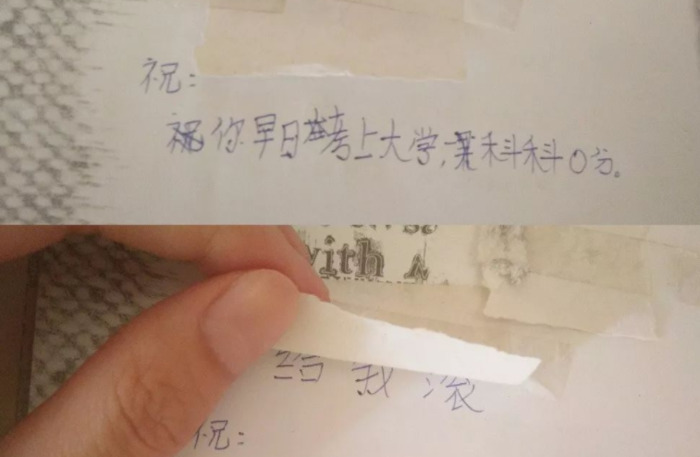 祝：
祝你早日考上大学，科科0分。
with A
给我滚
祝：